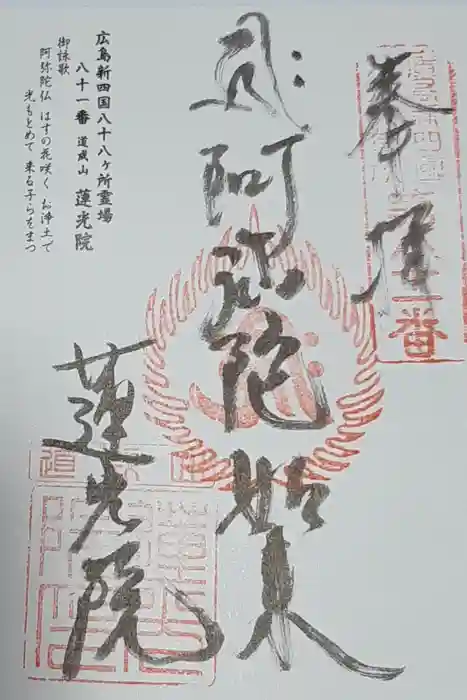 奉拝
阿弥陀如来
蓮光院
広島新四国八十八ヶ所霊場
八十一番 道成山 蓮光院
御詠歌
阿弥陀仏 はすの花咲く お浄土で
光もとめて 来る子らをまつ